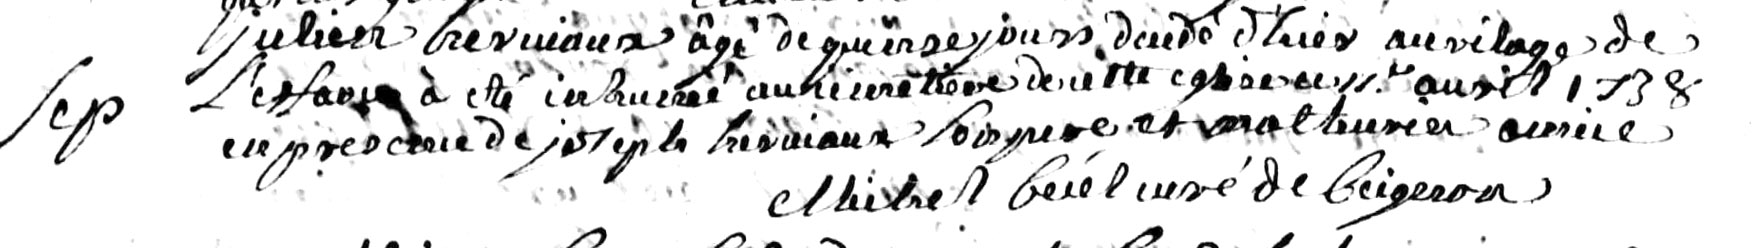 julien herviaux âgé de quinze jours décédé d'hier au vilage de
Sep
à été inhumé au cimetière de cette eglise ce 11.e avril 1738
en presence de joseph herviaux son pere et mathurin
Michel curé de